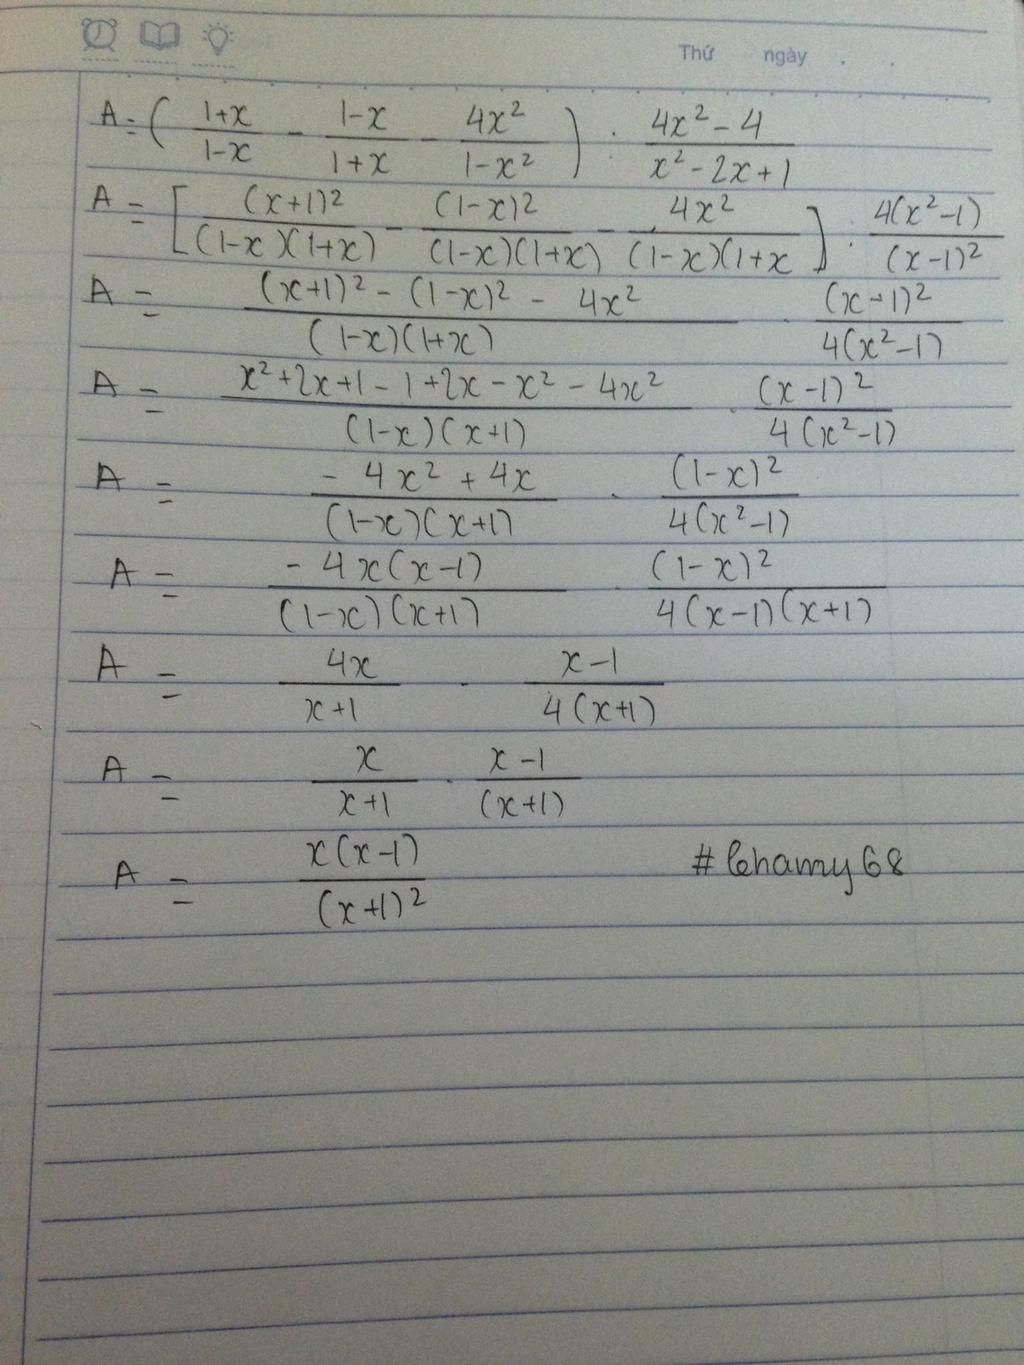 Thứ ngày . .
A = ( \frac{1+x}{1-x} - \frac{1-x}{1+x} - \frac{4x²}{1-x²} ) : \frac{4x²-4}{x²-2x+1}
A = [ \frac{(x+1)²}{(1-x)(1+x)} - \frac{(1-x)²}{(1-x)(1+x)} - \frac{4x²}{(1-x)(1+x} ] : \frac{4(x²-1)}{(x-1)²}
A = \frac{(x+1)² - (1-x)² - 4x²}{(1-x)(1+x)} . \frac{(x-1)²}{4(x²-1)}
A = \frac{x²+2x+1-1+2x-x²-4x²}{(1-x)(x+1)} . \frac{(x-1)²}{4(x²-1)}
A = \frac{-4x²+4x}{(1-x)(x+1)} . \frac{(1-x)²}{4(x²-1)}
A = \frac{-4x(x-1)}{(1-x)(x+1)} . \frac{(1-x)²}{4(x-1)(x+1)}
A = \frac{4x}{x+1} . \frac{x-1}{4(x+1)}
A = \frac{x}{x+1} . \frac{x-1}{(x+1)}
A = \frac{x(x-1)}{(x+1)²} #lehamy68